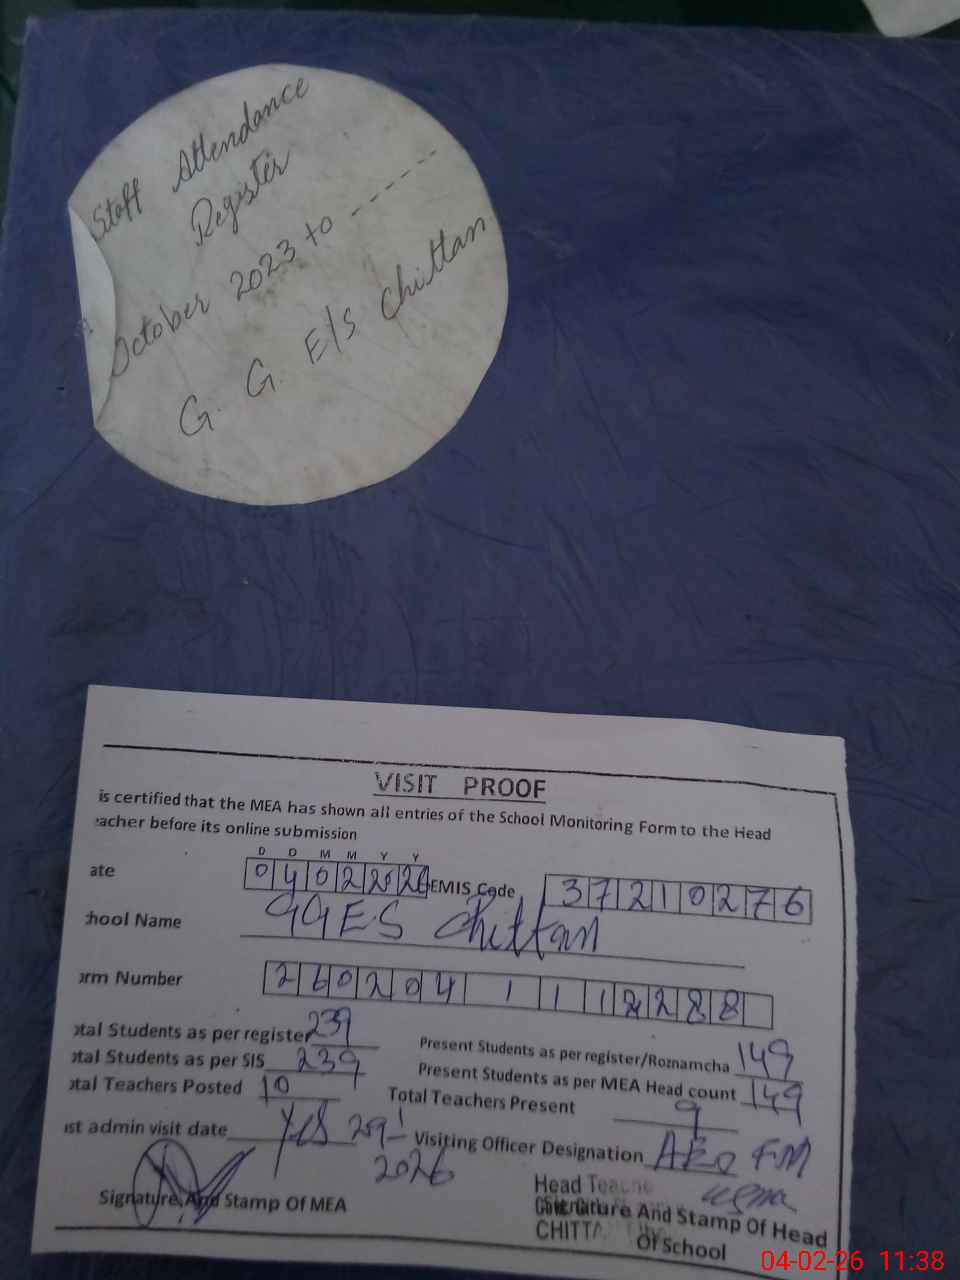 Staff Attendance
Register
October 2023 to -----
G. G. E/S Chittan
VISIT PROOF
is certified that the MEA has shown all entries of the School Monitoring Form to the Head
eacher before its online submission
D D M M Y Y
ate 04 02 2026 EMIS Code 37210276
chool Name GGES Chittan
orm Number 260204 1 1 1 2288
otal Students as per register 239
Present Students as per register/Roznamcha 149
otal Students as per SIS 239
Present Students as per MEA Head count 149
otal Teachers Posted 10
Total Teachers Present 9
ast admin visit date Yes 29-1-2026
Visiting Officer Designation AEO
Signature And Stamp Of MEA
Head Teache
Signature And Stamp Of Head
Of School
CHITTA
04-02-26 11:38